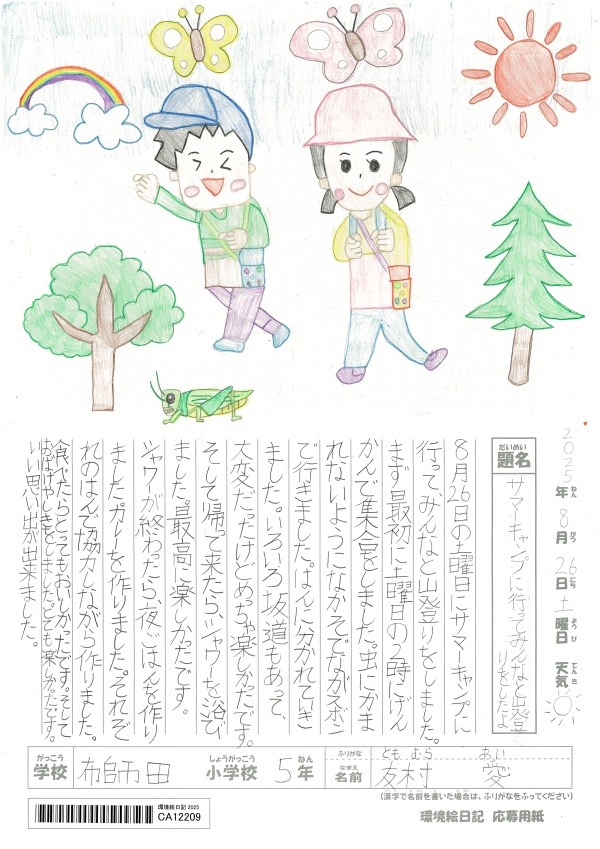 2025年8月26日土曜日 天気
ねん がつ にち ようび てんき
だいめい
題名
サマーキャンプに行ってみんなと山登
りをしたよ
8月26日の土曜日にサマーキャンプに
行って、みんなと山登りをしました。
まず最初に土曜日の2時にげん
かんで集合をしました。虫にかま
れないようになかそでながズボン
で行きました。はんに分かれていき
ました。いろいろ坂道もあって、
大変だったけどめちゃ楽しかったです。
そして帰って来たら、シャワーを浴び
ました。最高に楽しかったです。
シャワーが終わったら、夜ごはんを作り
ました。カレーを作りました。それぞ
れのはんで協力しながら作りました。
食べたらとってもおいしかったです。そして
おばけやしきをしました。とても楽しかったです。
いい思い出が出来ました。
がっこう
学校
布師田
しょうがっこう
小学校
5年
ねん
ふりがな
なまえ
名前
ともむら あい
友村 愛
(漢字で名前を書いた場合は、ふりがなをふってください)
環境絵日記 応募用紙
環境絵日記 2025
CA12209